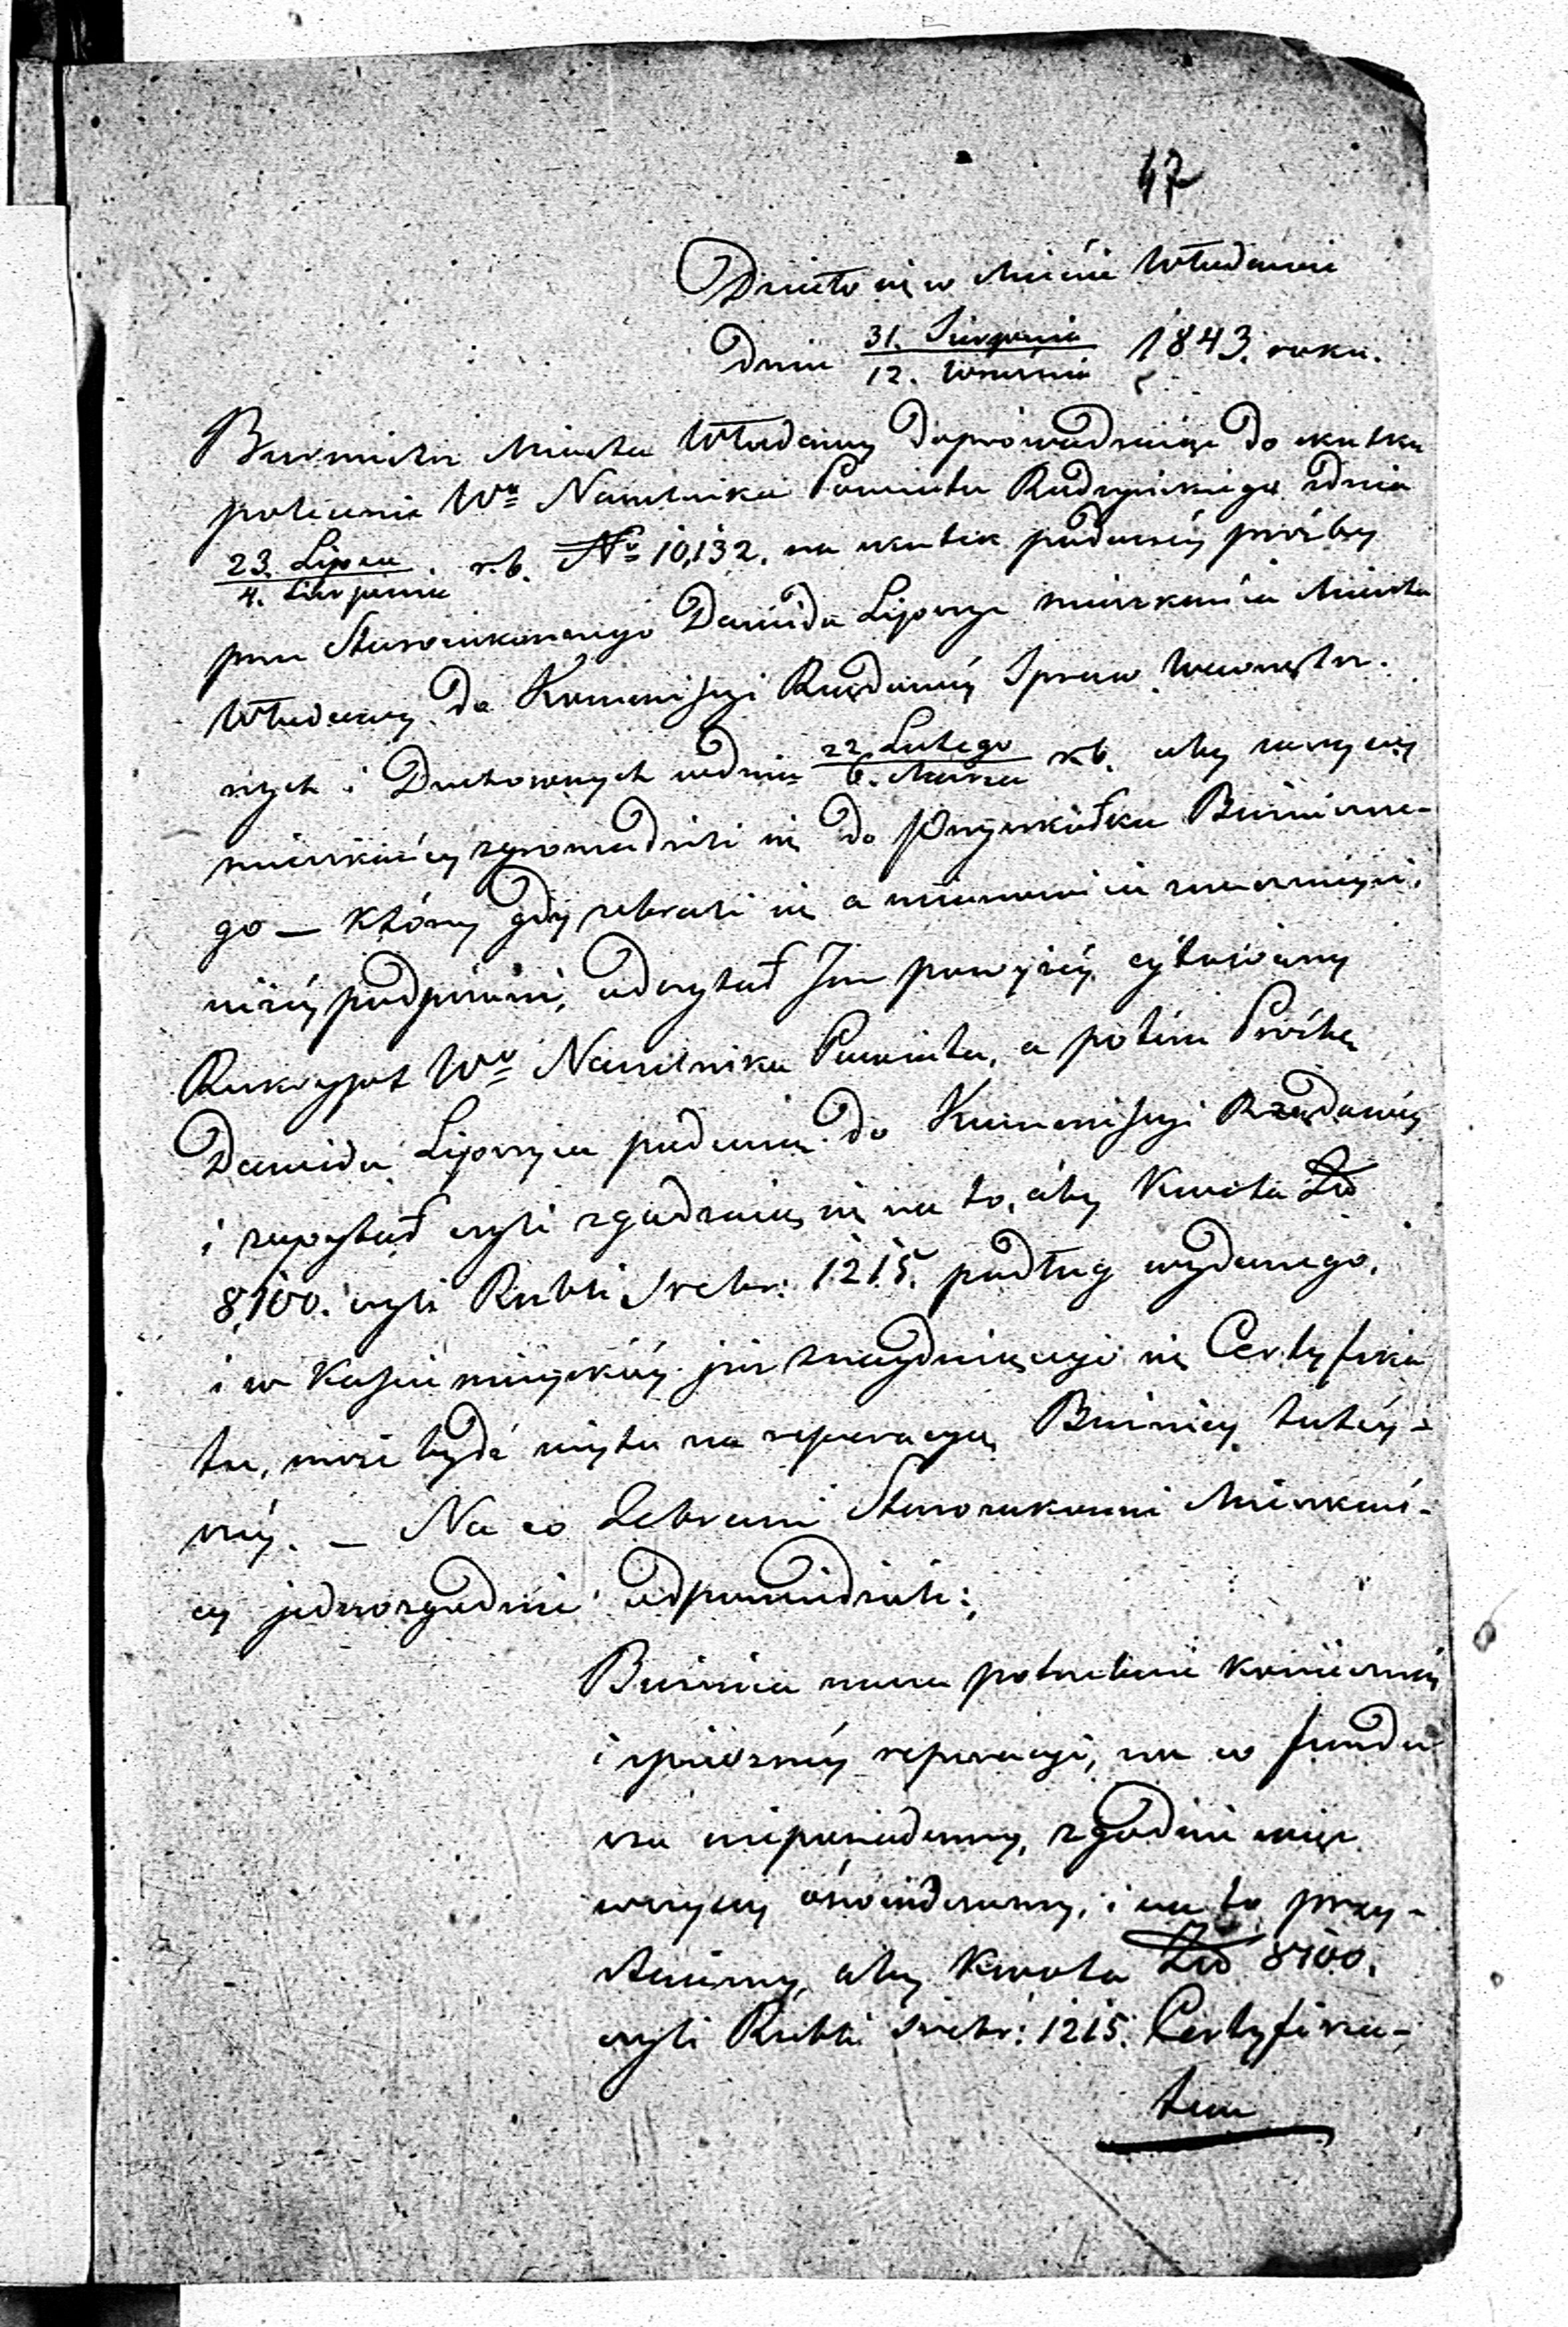 47
Działo się w Mieście Włodawie
Dnia 31. Sierpnia / 12. Września 1843. roku.
Burmistrz Miasta Włodawy doprowadzając do skutku
polecenie Wo Naczelnika Powiatu Radzyńskiego zdnia
23. Lipca / 4. Sierpnia r.b. No 10,132. na skutek podanéj prośby
przez Starozakonnego Dawida Lipszyc mieszkańca Miasta
Włodawy do Kommissyi Rządowéj Spraw Wewnętrz-
nych i Duchownych wdniu 22 Lutego / 6. Marca r.b. aby wszyscy
mieszkańcy zgromadzili się do Przyszkółka Bużniczne-
go — którzy gdy zebrali się a mianowicie znaczniejsi,
niżéj podpisani, odczytał Im powyżéj cytowany
Reskrypt Wo Naczelnika Powiatu, a potém Prośbę
Dawida Lipszyca podaną do Kommissyi Rządowéj
i zapytał czyli zgadzają się na to, aby Kwota Złp
8,100. czyli Rubli Srebr: 1215. podług wydanego,
i w Kassie miejskiéj już znaydującego się Certyfika
tu, może bydź użyta na reperacyą Bużnicy tutéy-
széy. — Na co Zebrani Starozakonni Mieszkań-
cy jednozgodnie odpowiedzieli:
Bużnica nasza potrzebuie koniecznéj
i spieszněj reperacyi, na co fundu
szu nieposiadamy, zgodnie więc
wszyscy oświadczamy, i na to przy-
staiemy, aby Kwota Złp 8100.
czyli Rubli srebr: 1215. Certyfika-
tem